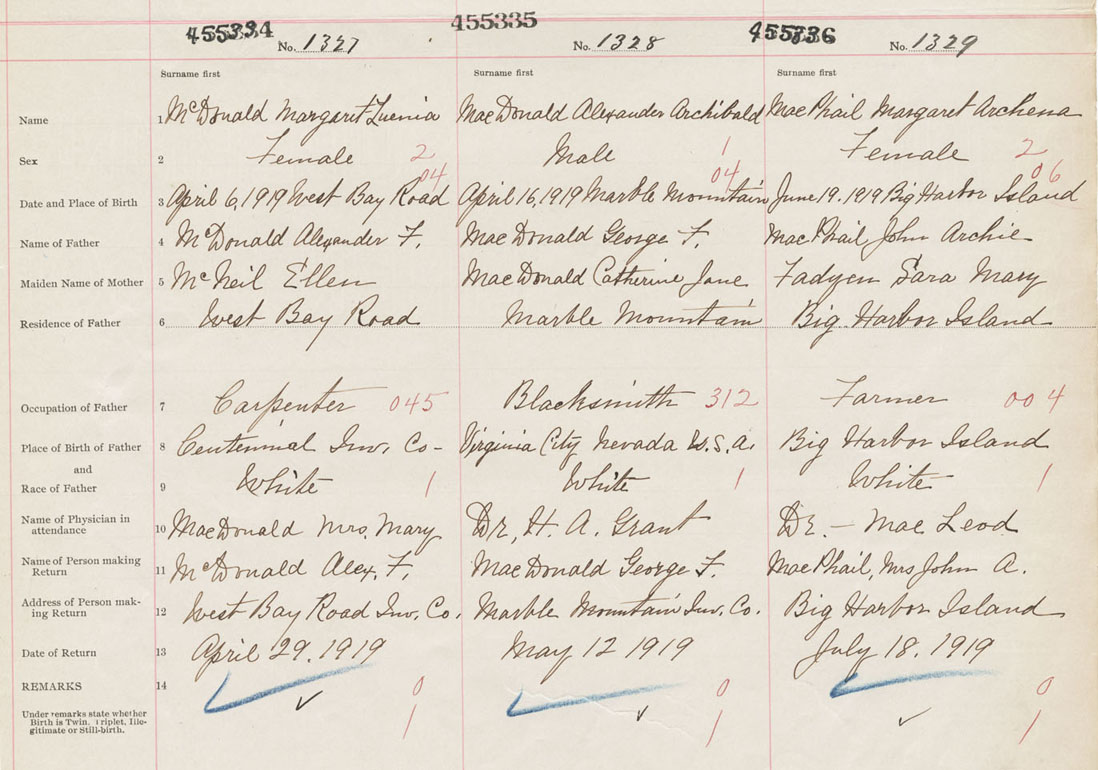 455334 455335 455336
No. 1327 No. 1328 No. 1329
Surname first Surname first Surname first
Name 1 McDonald Margaret Luenia MacDonald Alexander Archibald MacPhail Margaret Archena
Sex 2 Female 2 Male 1 Female 2
04 04 06
Date and Place of Birth 3 April 6, 1919 West Bay Road April 16, 1919 Marble Mountain June 19. 1919 Big Harbor Island
Name of Father 4 McDonald Alexander F. MacDonald George F. MacPhail, John Archie
Maiden Name of Mother 5 McNeil Ellen MacDonald Catherine Jane Fadyen Sara Mary
Residence of Father 6 West Bay Road Marble Mountain Big Harbor Island
Occupation of Father 7 Carpenter 045 Blacksmith 312 Farmer 004
Place of Birth of Father 8 Centennial Inv. Co- Virginia City Nevada U.S.A. Big Harbor Island
and
Race of Father 9 White 1 White 1 White 1
Name of Physician in
attendance 10 MacDonald Mrs. Mary Dr. H. A. Grant Dr. - MacLeod
Name of Person making
Return 11 McDonald Alex. F. MacDonald George F. MacPhail, Mrs John A.
Address of Person mak-
ing Return 12 West Bay Road Inv. Co. Marble Mountain Inv. Co. Big Harbor Island
Date of Return 13 April 29. 1919 May 12 1919 July 18. 1919
REMARKS 14 0 0 0
Under remarks state whether
Birth is Twin, Triplet, Ille-
gitimate or Still-birth. 1 1 1